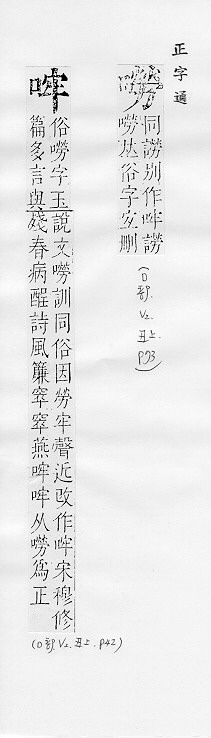 正字通
同䜎别作哰䜎
嘮𠀤俗字宜刪
(口部. V2. 丑上. p73)
哰
俗嘮字玉
篇多言與
說文嘮訓同俗因勞牢聲近改作哰宋穆修
殘春病酲詩風簾窣窣燕哰哰从嘮爲正
(口部 V2. 丑上. p42)